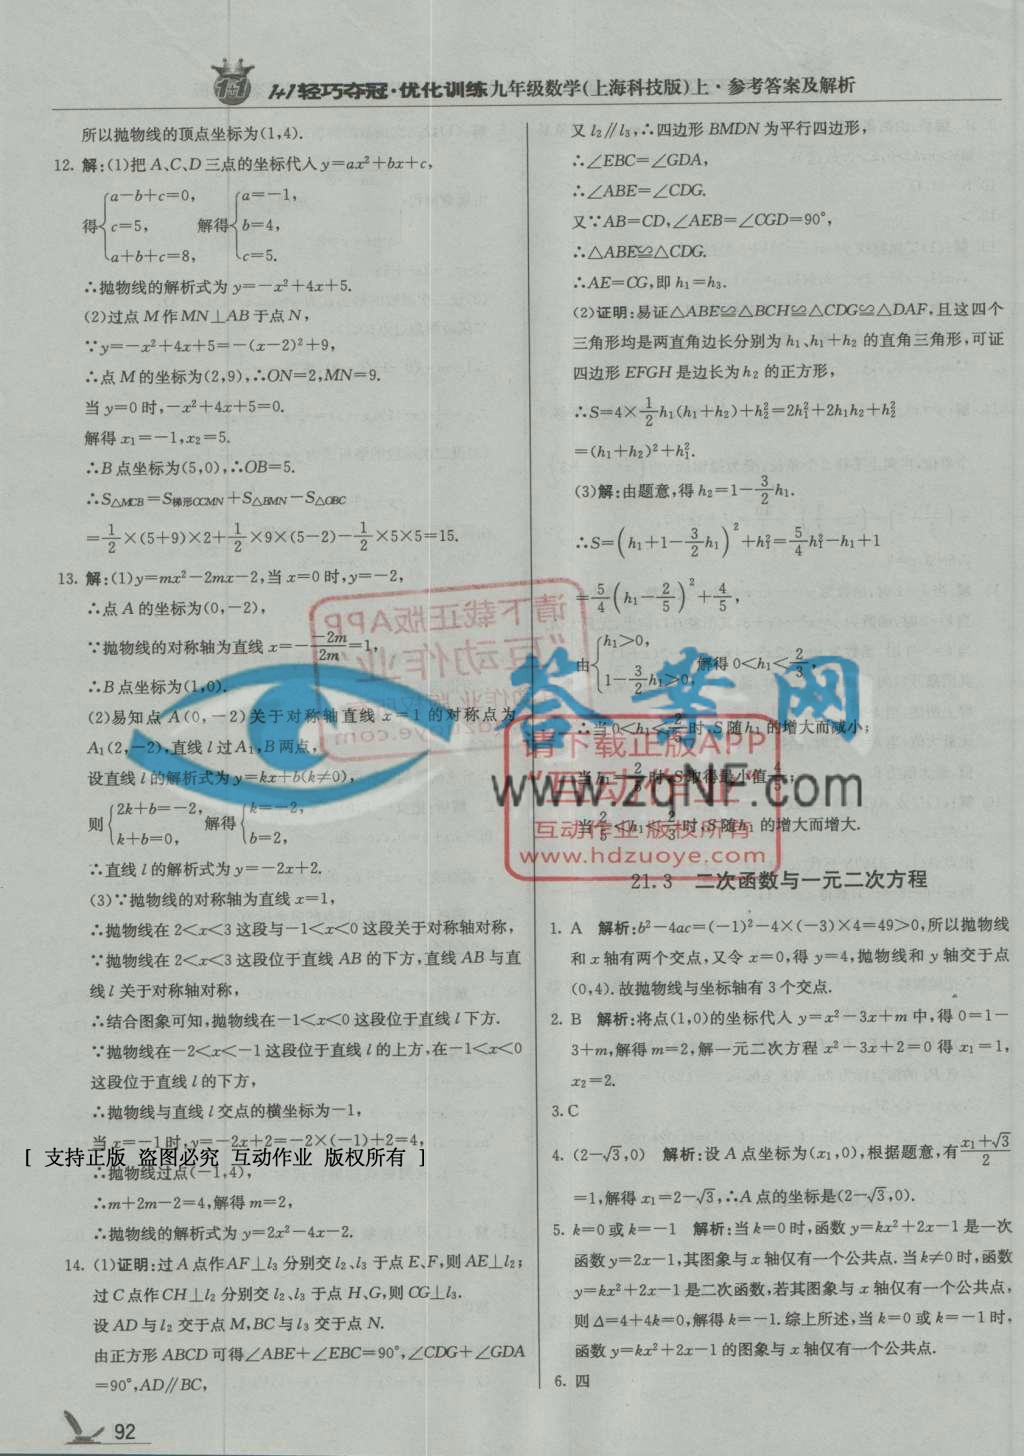 1+1轻巧夺冠·优化训练九年级数学(上海科技版)上·参考答案及解析
所以抛物线的顶点坐标为(1,4).
12. 解:(1)把A、C、D三点的坐标代入y=ax²+bx+c,
得{a-b+c=0, c=5, a+b+c=8, 解得{a=-1, b=4, c=5.
∴抛物线的解析式为y=-x²+4x+5.
(2)过点M作MN⊥AB于点N,
∵y=-x²+4x+5=-(x-2)²+9,
∴点M的坐标为(2,9),∴ON=2,MN=9.
当y=0时,-x²+4x+5=0.
解得x₁=-1,x₂=5.
∴B点坐标为(5,0),∴OB=5.
∴S△MCB=S梯形OCMN+S△BMN-S△OBC
=1/2×(5+9)×2+1/2×9×(5-2)-1/2×5×5=15.
13. 解:(1)y=mx²-2mx-2,当x=0时,y=-2,
∴点A的坐标为(0,-2),
∵抛物线的对称轴为直线x=-(-2m)/(2m)=1,
∴B点坐标为(1,0).
(2)易知点A(0,-2)关于对称轴直线x=1的对称点为
A₁(2,-2),直线l过A₁,B两点,
设直线l的解析式为y=kx+b(k≠0),
则{2k+b=-2, k+b=0, 解得{k=-2, b=2,
∴直线l的解析式为y=-2x+2.
(3)∵抛物线的对称轴为直线x=1,
∴抛物线在2<x<3这段与-1<x<0这段关于对称轴对称,
∵抛物线在2<x<3这段位于直线AB的下方,直线AB与直
线l关于对称轴对称,
∴结合图象可知,抛物线在-1<x<0这段位于直线l下方.
∵抛物线在-2<x<-1这段位于直线l的上方,在-1<x<0
这段位于直线l的下方,
∴抛物线与直线l交点的横坐标为-1,
当x=-1时,y=-2x+2=-2×(-1)+2=4,
[ 支持正版 盗图必究 互动作业 版权所有 ]
∴抛物线过点(-1,4),
∴m+2m-2=4,解得m=2,
∴抛物线的解析式为y=2x²-4x-2.
14. (1)证明:过A点作AF⊥l₃分别交l₂、l₃于点E、F,则AE⊥l₂;
过C点作CH⊥l₂分别交l₂、l₃于点H、G,则CG⊥l₃.
设AD与l₂交于点M,BC与l₃交于点N.
由正方形ABCD可得∠ABE+∠EBC=90°,∠CDG+∠GDA
=90°,AD∥BC,
92
又l₂∥l₃,∴四边形BMDN为平行四边形,
∴∠EBC=∠GDA,
∴∠ABE=∠CDG.
又∵AB=CD,∠AEB=∠CGD=90°,
∴△ABE≌△CDG.
∴AE=CG,即h₁=h₃.
(2)证明:易证△ABE≌△BCH≌△CDG≌△DAF,且这四个
三角形均是两直角边长分别为h₁、h₁+h₂的直角三角形,可证
四边形EFGH是边长为h₂的正方形,
∴S=4×1/2h₁(h₁+h₂)+h₂²=2h₁²+2h₁h₂+h₂²
=(h₁+h₂)²+h₁².
(3)解:由题意,得h₂=1-3/2h₁.
∴S=(h₁+1-3/2h₁)²+h₁²=5/4h₁²-h₁+1
=5/4(h₁-2/5)²+4/5,
由{h₁>0, 1-3/2h₁>0, 解得0<h₁<2/3,
∴当0<h₁<2/5时,S随h₁的增大而减小;
当h₁=2/5时,S取得最小值4/5;
当2/5<h₁<2/3时,S随h₁的增大而增大.
请下载正版APP
“互动作业”
互动作业·版权所有
www.hdzuoye.com
请下载正版APP
“互动作业”
答案网
www.zqNF.com
21.3 二次函数与一元二次方程
1. A 解析:b²-4ac=(-1)²-4×(-3)×4=49>0,所以抛物线
和x轴有两个交点,又令x=0,得y=4,抛物线和y轴交于点
(0,4).故抛物线与坐标轴有3个交点.
2. B 解析:将点(1,0)的坐标代入y=x²-3x+m中,得0=1-
3+m,解得m=2,解一元二次方程x²-3x+2=0得x₁=1,
x₂=2.
3. C
4. (2-√3,0) 解析:设A点坐标为(x₁,0),根据题意,有(x₁+√3)/2
=1,解得x₁=2-√3,∴A点的坐标是(2-√3,0).
5. k=0或k=-1 解析:当k=0时,函数y=kx²+2x-1是一次
函数y=2x-1,其图象与x轴仅有一个公共点.当k≠0时,函数
y=kx²+2x-1是二次函数,若其图象与x轴仅有一个公共点,
则Δ=4+4k=0,解得k=-1.综上所述,当k=0或k=-1时,
函数y=kx²+2x-1的图象与x轴仅有一个公共点.
6. 四